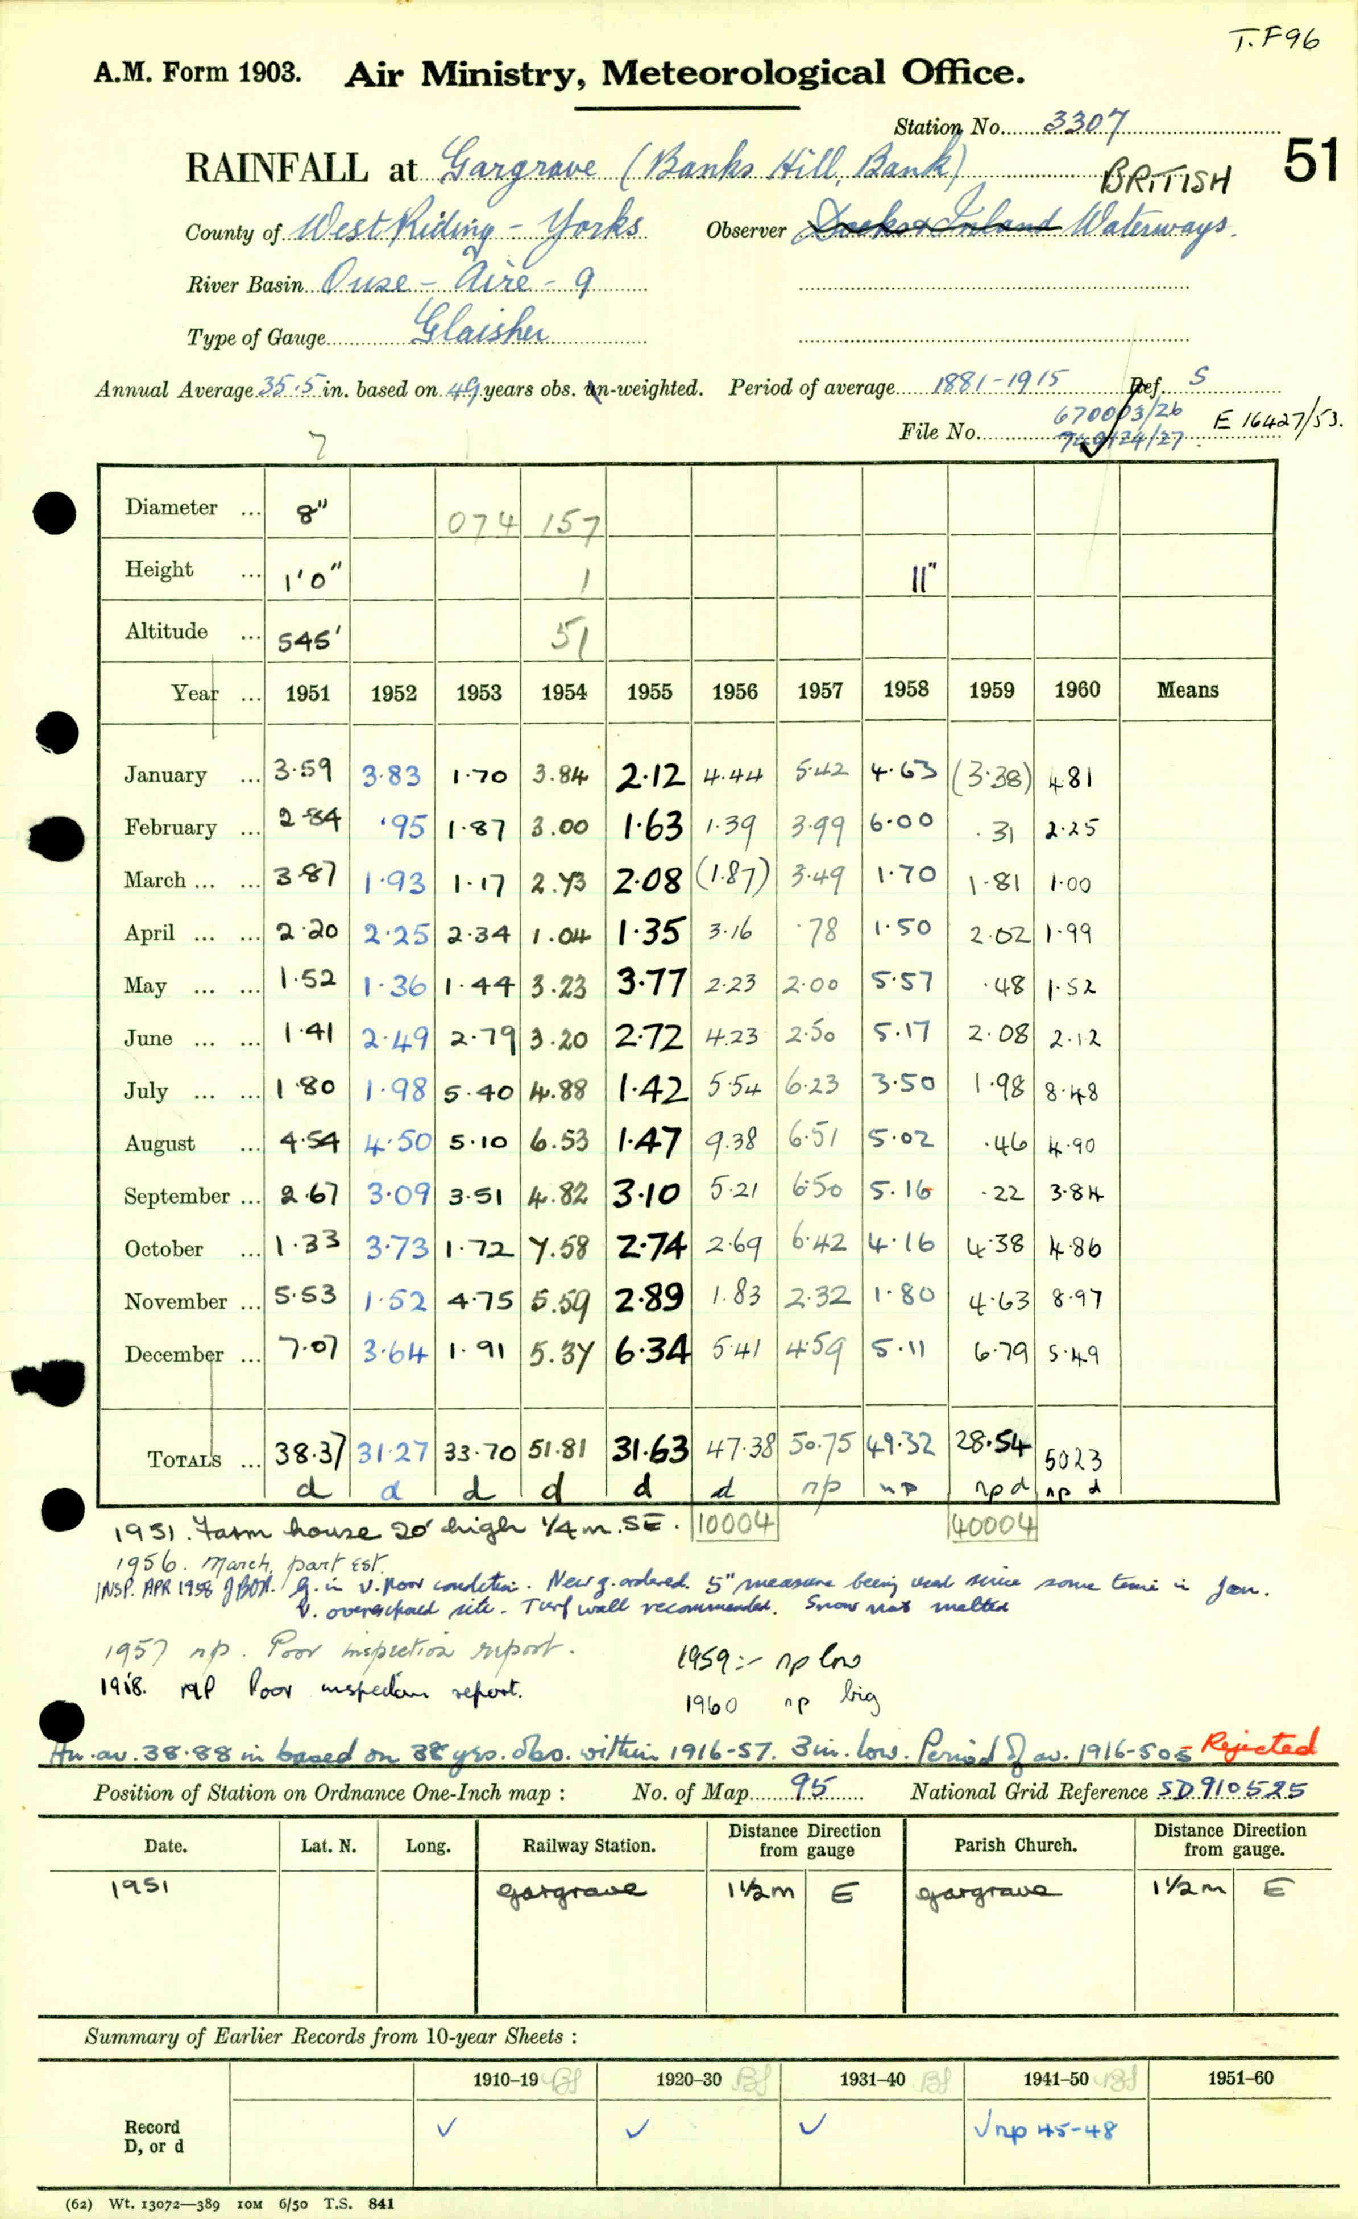 T.F96
A.M. Form 1903. Air Ministry, Meteorological Office.
Station No. 3307
51
RAINFALL at Gargrave (Banks Hill, Bank)
BRITISH
County of West Riding - Yorks Observer Docks & Inland Waterways.
River Basin Ouse - Aire - 9
Type of Gauge Glaisher
Annual Average 35.5 in. based on 49 years obs. un-weighted. Period of average 1881-1915 Ref. S
File No. 670003/26 E 16427/53.
7
Diameter ... 8" 074 157
Height ... 1'0" 1 11"
Altitude ... 545' 51
Year ... 1951 1952 1953 1954 1955 1956 1957 1958 1959 1960 Means
January ... 3.59 3.83 1.70 3.84 2.12 4.44 5.42 4.63 (3.38) 4.81
February ... 2.84 .95 1.87 3.00 1.63 1.39 3.99 6.00 .31 2.25
March ... ... 3.87 1.93 1.17 2.73 2.08 (1.87) 3.49 1.70 1.81 1.00
April ... ... 2.20 2.25 2.34 1.04 1.35 3.16 .78 1.50 2.02 1.99
May ... ... 1.52 1.36 1.44 3.23 3.77 2.23 2.00 5.57 .48 1.52
June ... ... 1.41 2.49 2.79 3.20 2.72 4.23 2.50 5.17 2.08 2.12
July ... ... 1.80 1.98 5.40 4.88 1.42 5.54 6.23 3.50 1.98 8.48
August ... 4.54 4.50 5.10 6.53 1.47 9.38 6.51 5.02 .46 4.90
September ... 2.67 3.09 3.51 4.82 3.10 5.21 6.50 5.16 .22 3.84
October ... 1.33 3.73 1.72 7.58 2.74 2.69 6.42 4.16 4.38 4.86
November ... 5.53 1.52 4.75 5.59 2.89 1.83 2.32 1.80 4.63 8.97
December ... 7.07 3.64 1.91 5.37 6.34 5.41 4.59 5.11 6.79 5.49
TOTALS ... 38.37 31.27 33.70 51.81 31.63 47.38 50.75 49.32 28.54 50.23
d d d d d d np np np d np d
1951. Farm house 20' high 1/4 m. SE. 10004 40004
1956. March, part Est.
INSP. APR 1958 g. in v. poor condition. New g. ordered. 5" measure being used since some time in Jan.
v. overexposed site. Turf wall recommended. Snow not melted
1957 np. Poor inspection report.
1959:- np low
1958. np Poor inspection report.
1960 np big
An. av. 38.88 in based on 38 yrs. obs. within 1916-57. 3 in. low. Period of av. 1916-50s Rejected
Position of Station on Ordnance One-Inch map : No. of Map 95 National Grid Reference SD 910525
Date. Lat. N. Long. Railway Station. Distance from Direction gauge Parish Church. Distance from Direction gauge.
1951 Gargrave 1 1/2 m E Gargrave 1 1/2 m E
Summary of Earlier Records from 10-year Sheets :
1910–19 1920–30 1931–40 1941–50 1951–60
Record ✓ ✓ ✓ ✓ np 45-48
D, or d
(62) Wt. 13072—389 10M 6/50 T.S. 841